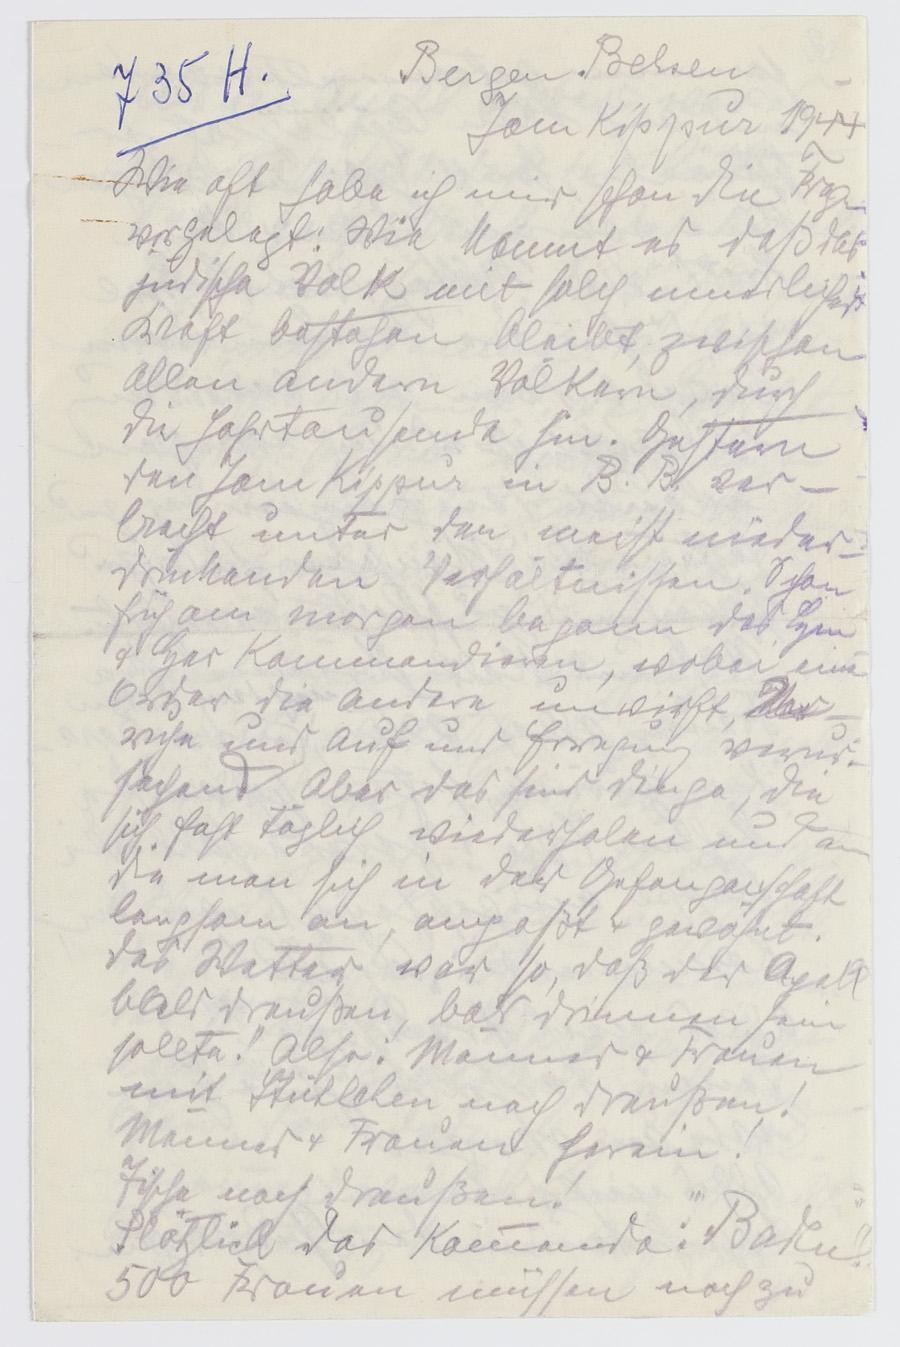 735 H.
Bergen Belsen
Jom Kippur 1944
Wie oft habe ich mir schon die Frage
vorgelegt: Wie kommt es daß das
jüdische Volk mit solch unerlichster
Kraft bestehen bleibt, zwischen
allen andern Völkern, durch
die Jahrtausende hin. Gestern
den Jom Kippur in B. B. ver-
bracht unter den meist nieder-
drückenden Verhältnissen. Schon
früh am morgen begann das Hin
& Her Kommandieren, wobei eine
Order die andere umwirft,
und auf und Erregung verur-
sachend. Aber das sind dinge, die
sich fast täglich wiederholen und an
die man sich in der Gefangenschaft
langsam an, anpaßt & gewöhnt.
das Wetter war so, daß der Apell
bald draußen, bald drinnen sein
sollte! Also: Männer & Frauen
mit Stühlchen nach draußen!
Männer & Frauen herein!
Tische nach draußen!
Plötzlich das Kommando: "Baden"!
500 Frauen müssen noch zu